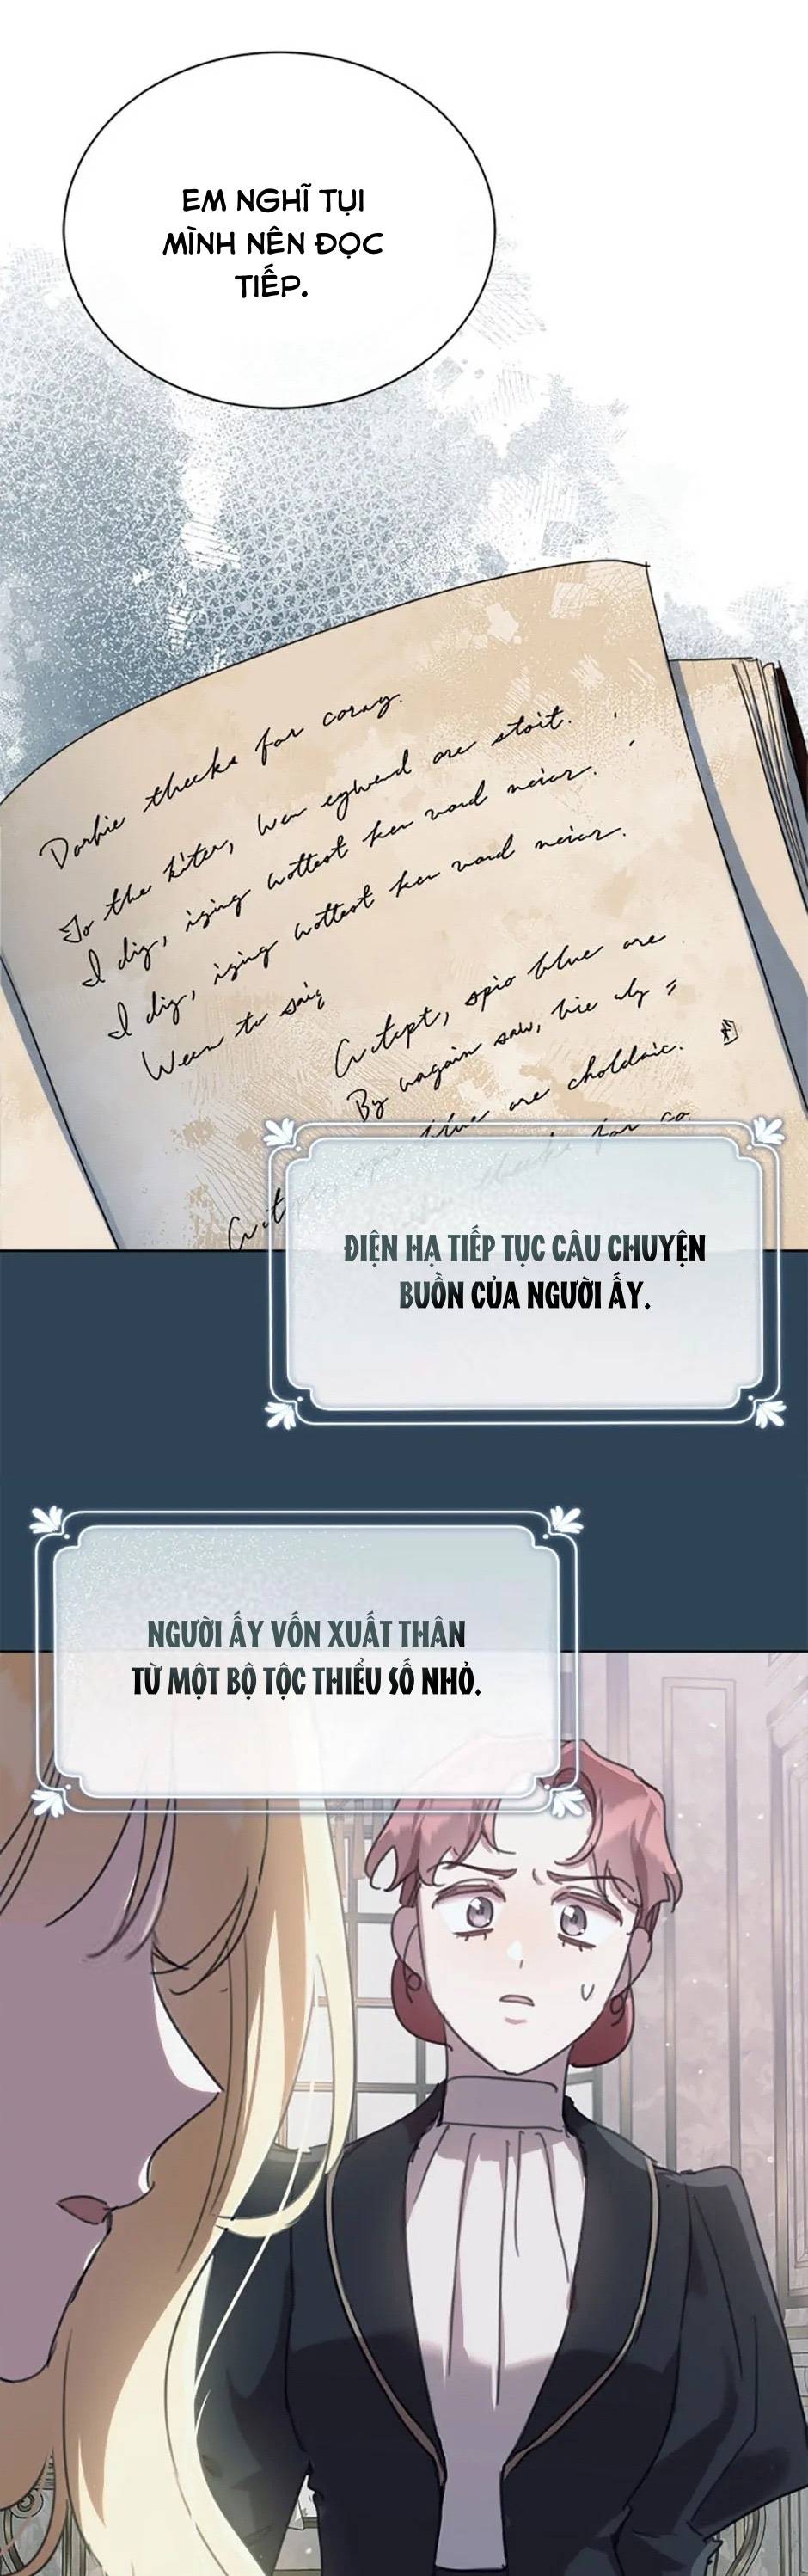 EM NGHĨ TỤI
MÌNH NÊN ĐỌC
TIẾP.
Darhie theeks for corny.
To the kiter, wen egwend are stoit.
I diy, izing wottest ken vord neior.
I diy, izing wottest ken vord neior.
Ween to
spio blue are
By wagain saw,
blue are
for co
ĐIỆN HẠ TIẾP TỤC CÂU CHUYỆN
BUỒN CỦA NGƯỜI ẤY.
NGƯỜI ẤY VỐN XUẤT THÂN
TỪ MỘT BỘ TỘC THIỂU SỐ NHỎ.